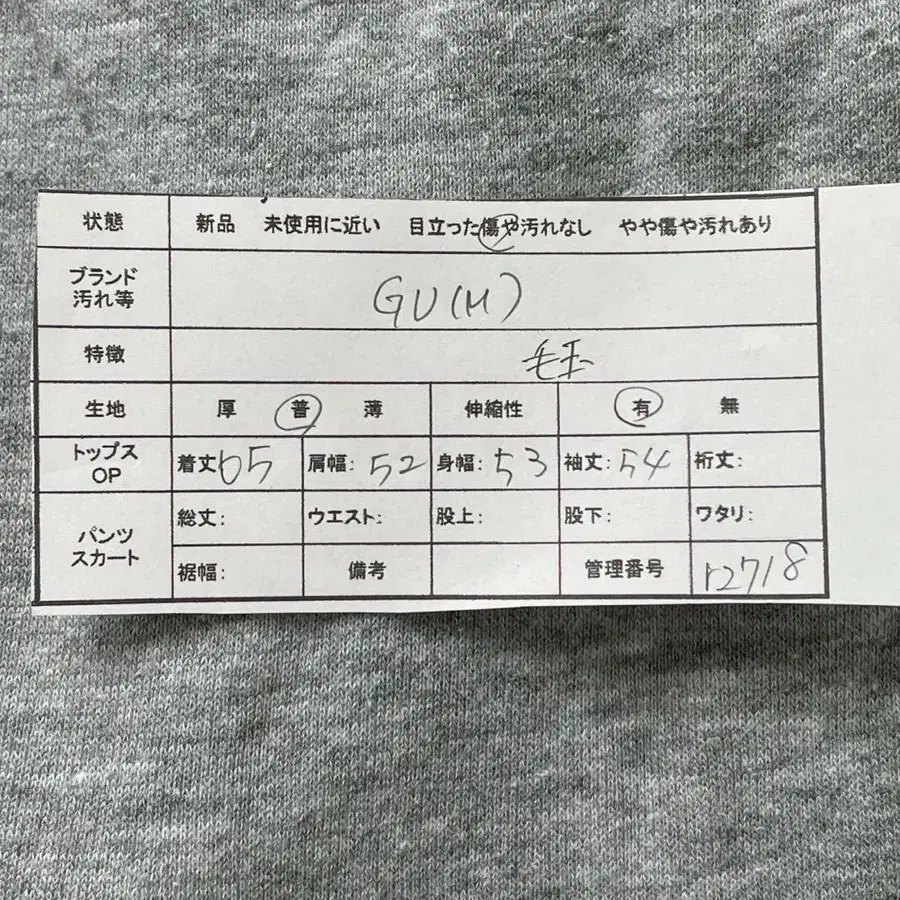 状態 新品 未使用に近い 目立った傷や汚れなし やや傷や汚れあり
ブランド
汚れ等 GU(M)
特徴 毛玉
生地 厚 普 薄 伸縮性 有 無
トップス
OP 着丈65 肩幅:52 身幅:53 袖丈:54 裄丈:
パンツ
スカート 総丈: ウエスト: 股上: 股下: ワタリ:
裾幅: 備考 管理番号 r2718